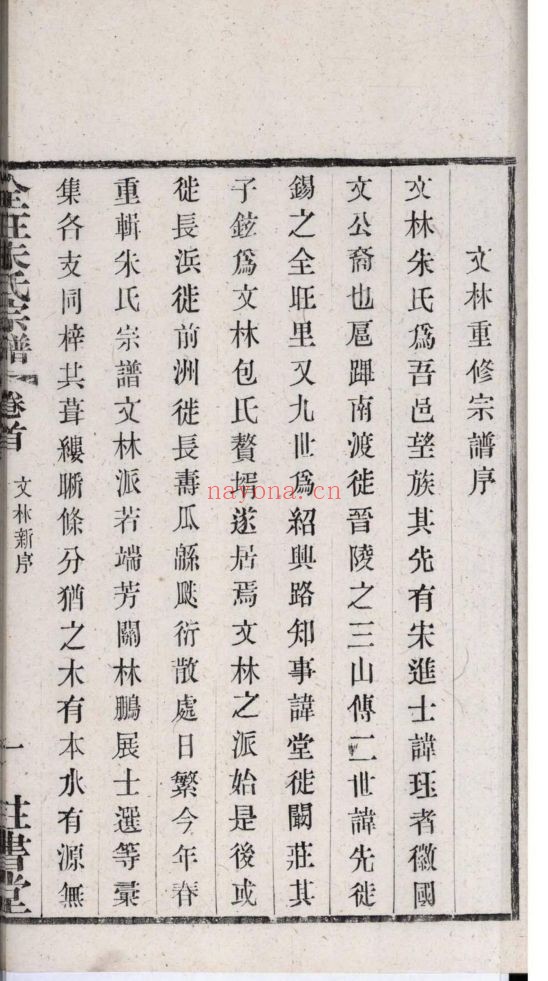 文林重修宗譜序
文林朱氏爲吾邑望族其先有宋進士諱珏者徽國
文公裔也扈蹕南渡徙晉陵之三山傳二世諱先徙
錫之全旺里又九世爲紹興路知事諱堂徙闞莊其
子鉉爲文林包氏贅壻遂居焉文林之派始是後或
徙長浜徙前洲徙長壽瓜緜瓞衍散處日繁今年春
重輯朱氏宗譜文林派若端芳關林鵬展士選等彙
集各支同梓其葺縷晰條分猶之木有本水有源無
全旺朱氏宗譜 卷首 文林新序 一 書堂
nayona.cn